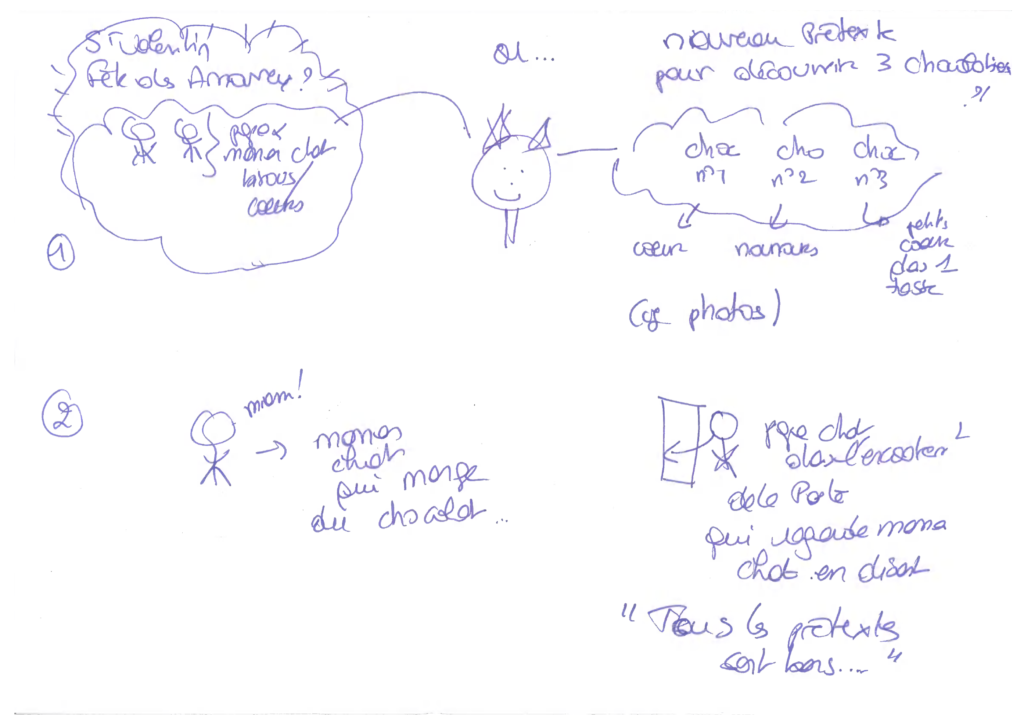 St Valentin
fête des Amoureux ?
papa &
maman chat
coeurs
ou...
nouveau Prétexte
pour découvrir 3
?!
choc cho choc
n°1 n°2 n°3
coeur nounours petits
coeur
dans 1
(cf photos)
1
2
miam!
maman
chat
qui mange
du chocolat...
papa chat
dans l'
de la Porte
qui regarde maman
chat en disant
"Tous les prétextes
sont bons...."